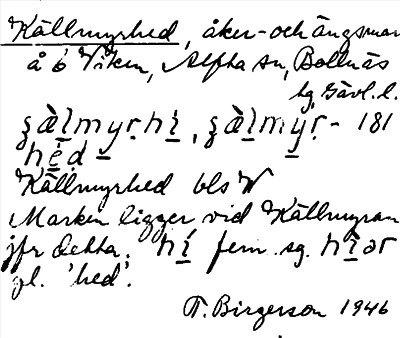 Källmyrhed, åker- och ängsmar
å ö Viken, Alfta sn, Bollnäs
tg, Gävl. l.
ʒàlmyrhì, ʒàlmýr- 181
héd
Källmyrhed bls W
Marken ligger vid Källmyran
jfr detta. hí fem. sg. hìər
pl. 'hed'.
T. Birgerson 1946